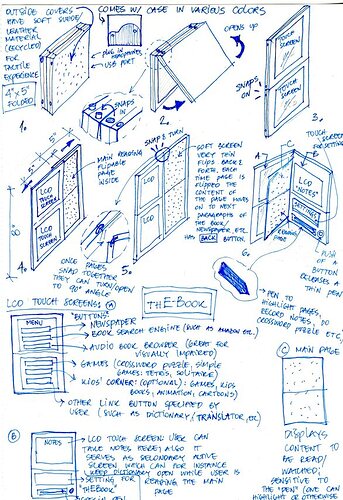 OUTSIDE COVERS
HAVE SOFT SUEDE/
LEATHER
MATERIAL
(RECYCLED)
FOR
TACTILE
EXPERIENCE
4" x 5"
FOLDED
COMES W/ CASE IN VARIOUS COLORS
PLUG IN
USB PORT
OPENS UP
TOUCH SCREEN
TOUCH SCREEN
SNAPS IN
SNAPS ON
1.
2.
3.
5"
5"
8"
MAIN READING
FLIPABLE
PAGE
INSIDE
SNAP & TURN
SOFT SCREEN
VERY THIN
FLIPS BACK &
FORTH, EACH
TIME PAGE IS
FLIPPED THE
CONTENT OF
THE PAGE MOVES
ON TO NEXT
PARAGRAPHS OF
THE BOOK/
NEWSPAPER ETC.
HAS BACK BUTTON.
TOUCH
SCREEN
FOR SETTING
A
C
B
LCD
TOUCH
SCREEN
LCD
TOUCH
SCREEN
LCD
LCD
LCD
"NOTES"
SETTINGS
READING
PAGE
4.
5.
6.
ONCE PAGES
SNAP TOGETHER
THEY CAN TURN/OPEN
TO 90° ANGLE
PUSH OF
A
BUTTON
RELEASES A
THIN PEN
PEN TO
HIGHLIGHT PAGES,
RECORD NOTES, DO
CROSSWORD PUZZLE ETC,
LCD TOUCH SCREENS: A
THE E-BOOK
"BUTTONS"
MENU
NEWSPAPER
BOOK SEARCH ENGINE (SUCH AS AMAZON ETC.)
AUDIO BOOK BROWSER (GREAT FOR
VISUALLY IMPAIRED)
GAMES (CROSSWORD PUZZLE, SIMPLE
GAMES: TETRIS, SOLITAIRE)
KIDS' CORNER: (OPTIONAL): GAMES, KIDS
BOOKS, ANIMATION, CARTOONS)
OTHER LINK BUTTON SPECIFIED BY
USER (SUCH AS DICTIONARY/TRANSLATOR, ETC)
C MAIN PAGE
B
NOTES
LCD TOUCH SCREEN: USER CAN
TAKE NOTES HERE; ALSO IT
SERVES AS SECONDARY ACTIVE
SCREEN WHICH CAN FOR INSTANCE
KEEP DICTIONARY OPEN WHILE USER IS
READING THE MAIN
SETTING FOR
PAGE
DISPLAYS
CONTENT
TO BE
READ/
WATCHED;
SENSITIVE
TO THE
"PEN" (ONE CAN
HIGHLIGHT OR OTHERWISE